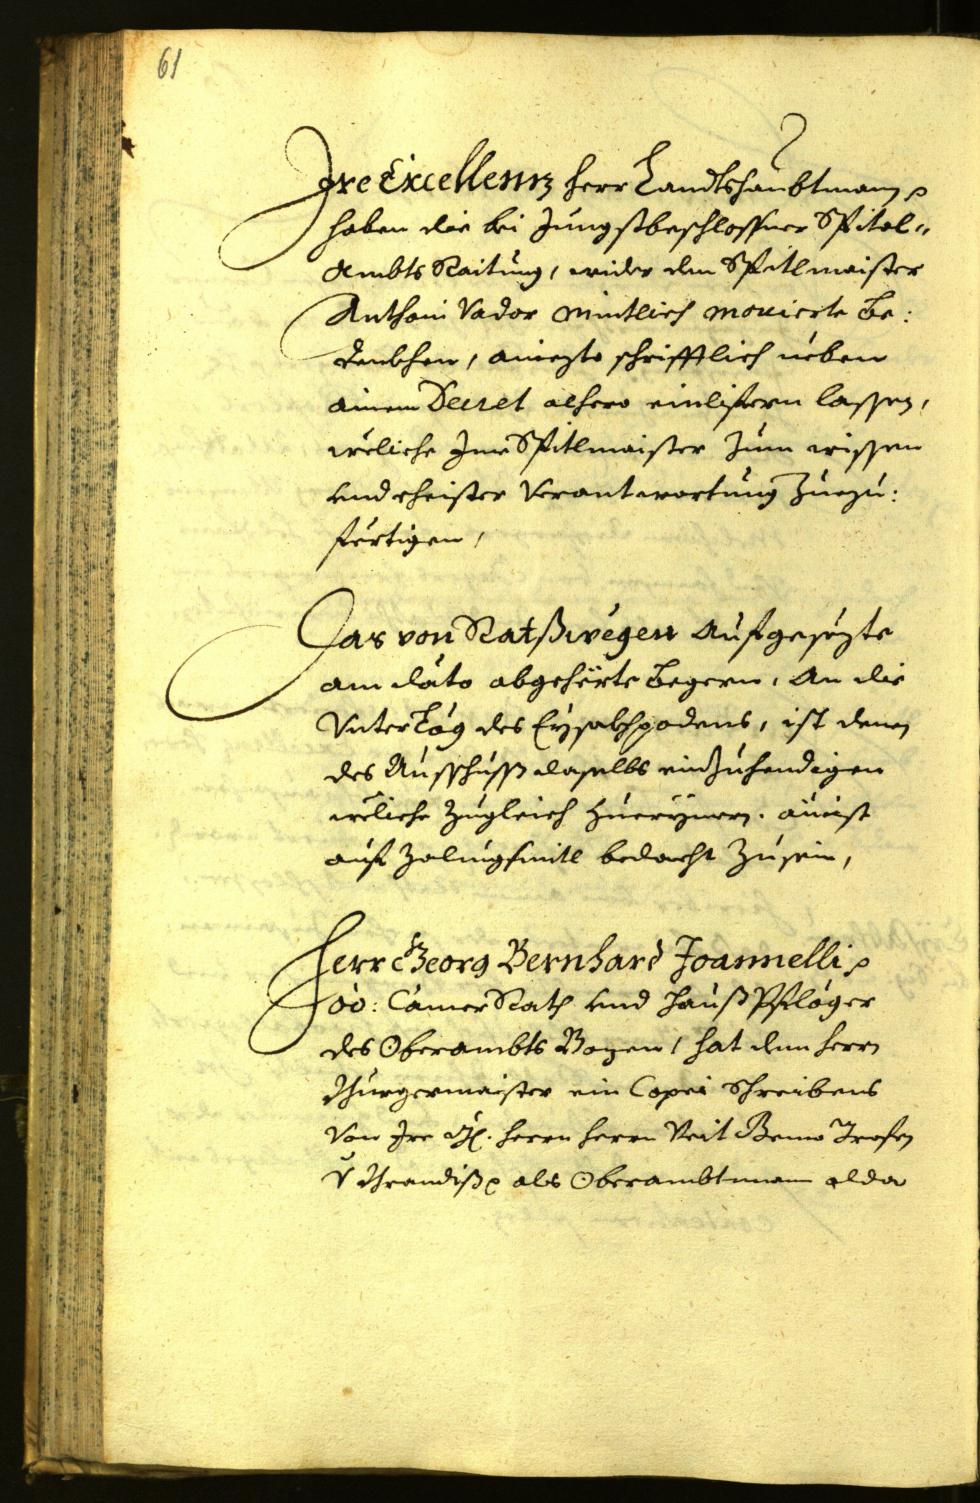 61
Ire Excellennz herr Landtshaubtmann
haben die bei Jungstbeschlossner Spital-
Ambts Raitung, wider den Spitlmaister
Anthoni Vador Mintlich movierte Be:
denkhen, aniezto schrifftlich neben
ainem Decret alhero einlifern lassen,
weliche Ime Spitlmaister zum wissen
und Verantwortung zuezu:
fertigen,
Das von Ratßwegen Aufgesezte
am dato abgehörte Begern, An die
des Eysakhpodens, ist denen
des Ausschuss daselbs einzuhendigen
weliche zugleich
auf Zalungsmitl bedacht zu sein,
Herr Georg Bernhard Joannelli
oö: Camer Rath und Hauß Pfleger
des Oberambts Bozen, hat dem herrn
Burgermaister ein Copei Schreibens
Von Ire herrn herrn Veit Benno
als Oberambtmann alda